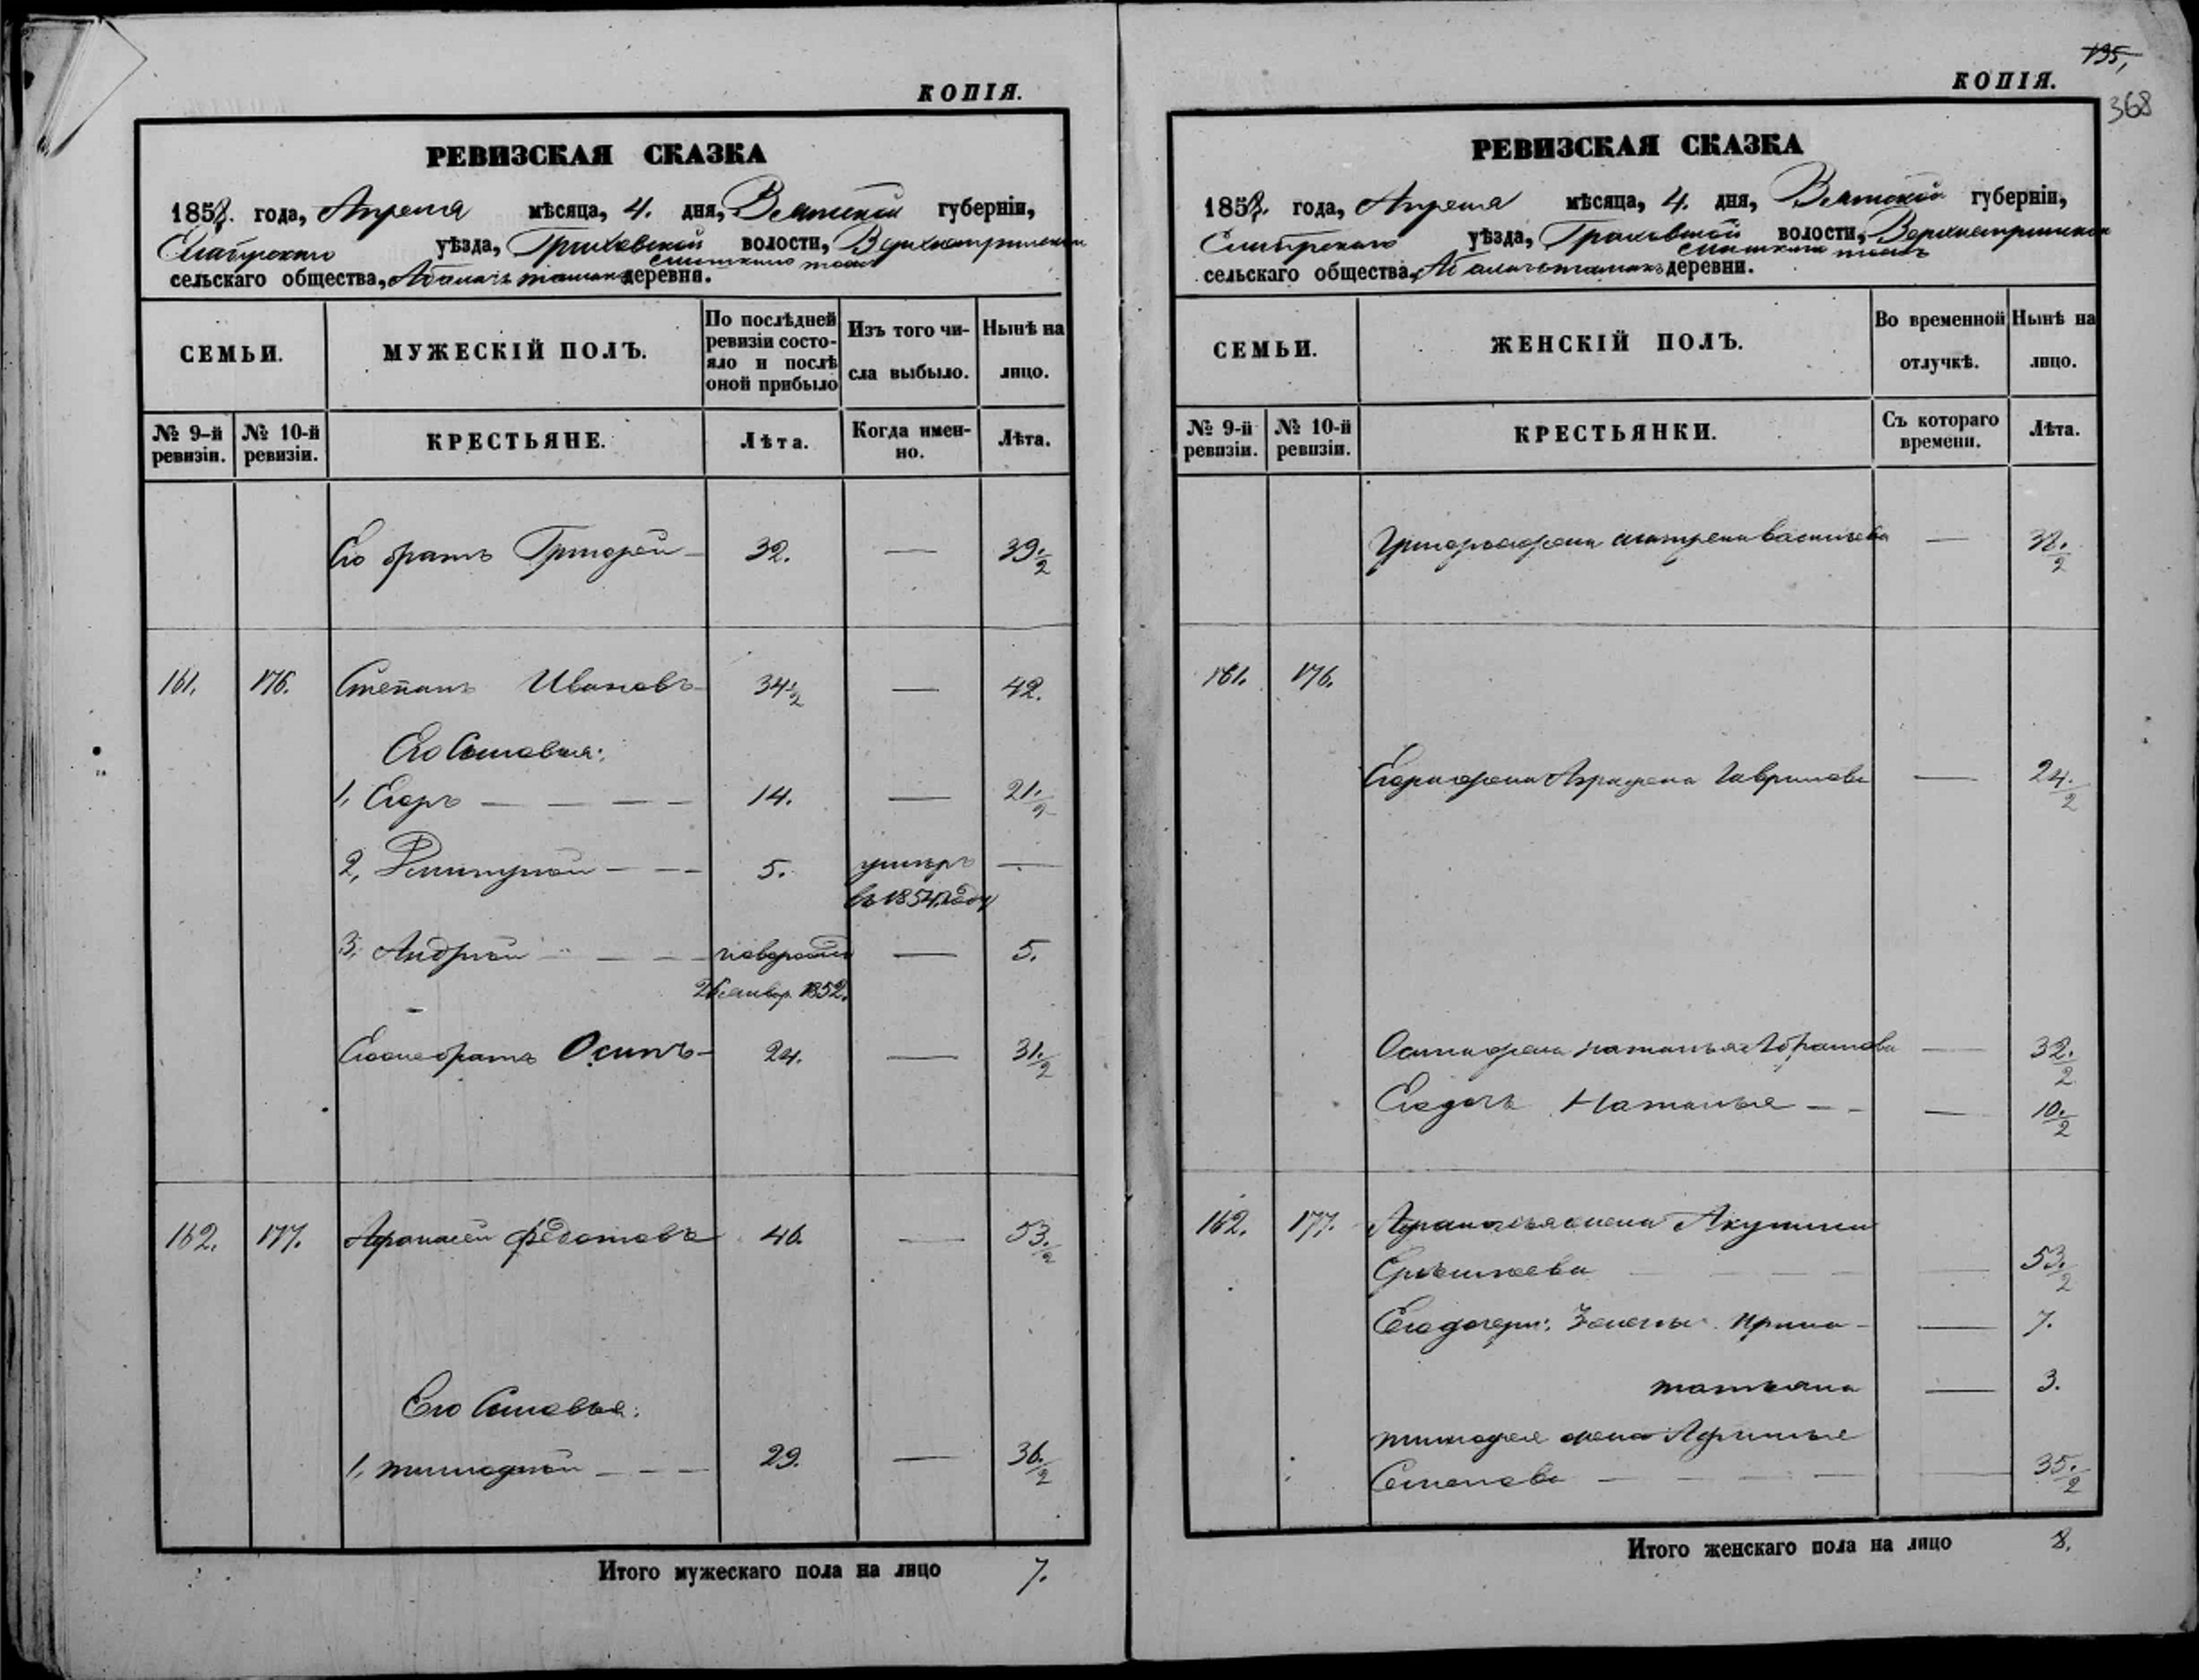 КОПІЯ.
РЕВИЗСКАЯ СКАЗКА
1858. года, Апреля мѣсяца, 4. дня, Вятской губерніи,
Елабужскаго уѣзда, Граховской волости,
сельскаго общества, деревни.
СЕМЬИ.
МУЖЕСКІЙ ПОЛЪ.
По послѣдней ревизіи состояло и послѣ оной прибыло
Изъ того числа выбыло.
Нынѣ на лицо.
№ 9-й ревизіи.
№ 10-й ревизіи.
КРЕСТЬЯНЕ.
Лѣта.
Когда именно.
Лѣта.
Его братъ Григорей — 32. — 39 1/2
161. 176. Степанъ Ивановъ 34 1/2 — 42.
Его Сыновья:
1, Егоръ — — — — 14. — 21 1/2
2, — — — 5. умеръ —
въ 1854 году
3, Андрей — — — — 5.
25 Январ. 1852.
братъ Осипъ — 24. — 31 1/2
162. 177. Афанасей Федотовъ 46. — 53 1/2
Его Сыновья:
1, Тимофей — — — 29. — 36 1/2
Итого мужескаго пола на лицо 7.
195,
КОПІЯ.
368
РЕВИЗСКАЯ СКАЗКА
1858. года, Апреля мѣсяца, 4. дня, Вятской губерніи,
Елабужскаго уѣзда, Граховской волости,
сельскаго общества, деревни.
СЕМЬИ.
ЖЕНСКІЙ ПОЛЪ.
Во временной отлучкѣ.
Нынѣ на лицо.
№ 9-й ревизіи.
№ 10-й ревизіи.
КРЕСТЬЯНКИ.
Съ котораго времени.
Лѣта.
Григорья жена Матрена Васильева —
161. 176.
Егора жена Аграфена Гаврилова — 24 1/2
Осипа жена Наталья — 32 1/2
Его дочь Наталья — — — 10 1/2
162. 177. Афанасья жена Акулина
— — — — 53 1/2
Его дочери: Ирина — — 7.
Татьяна — 3.
Тимофея жена Афимья
Семенова — — — — 35 1/2
Итого женскаго пола на лицо 8.